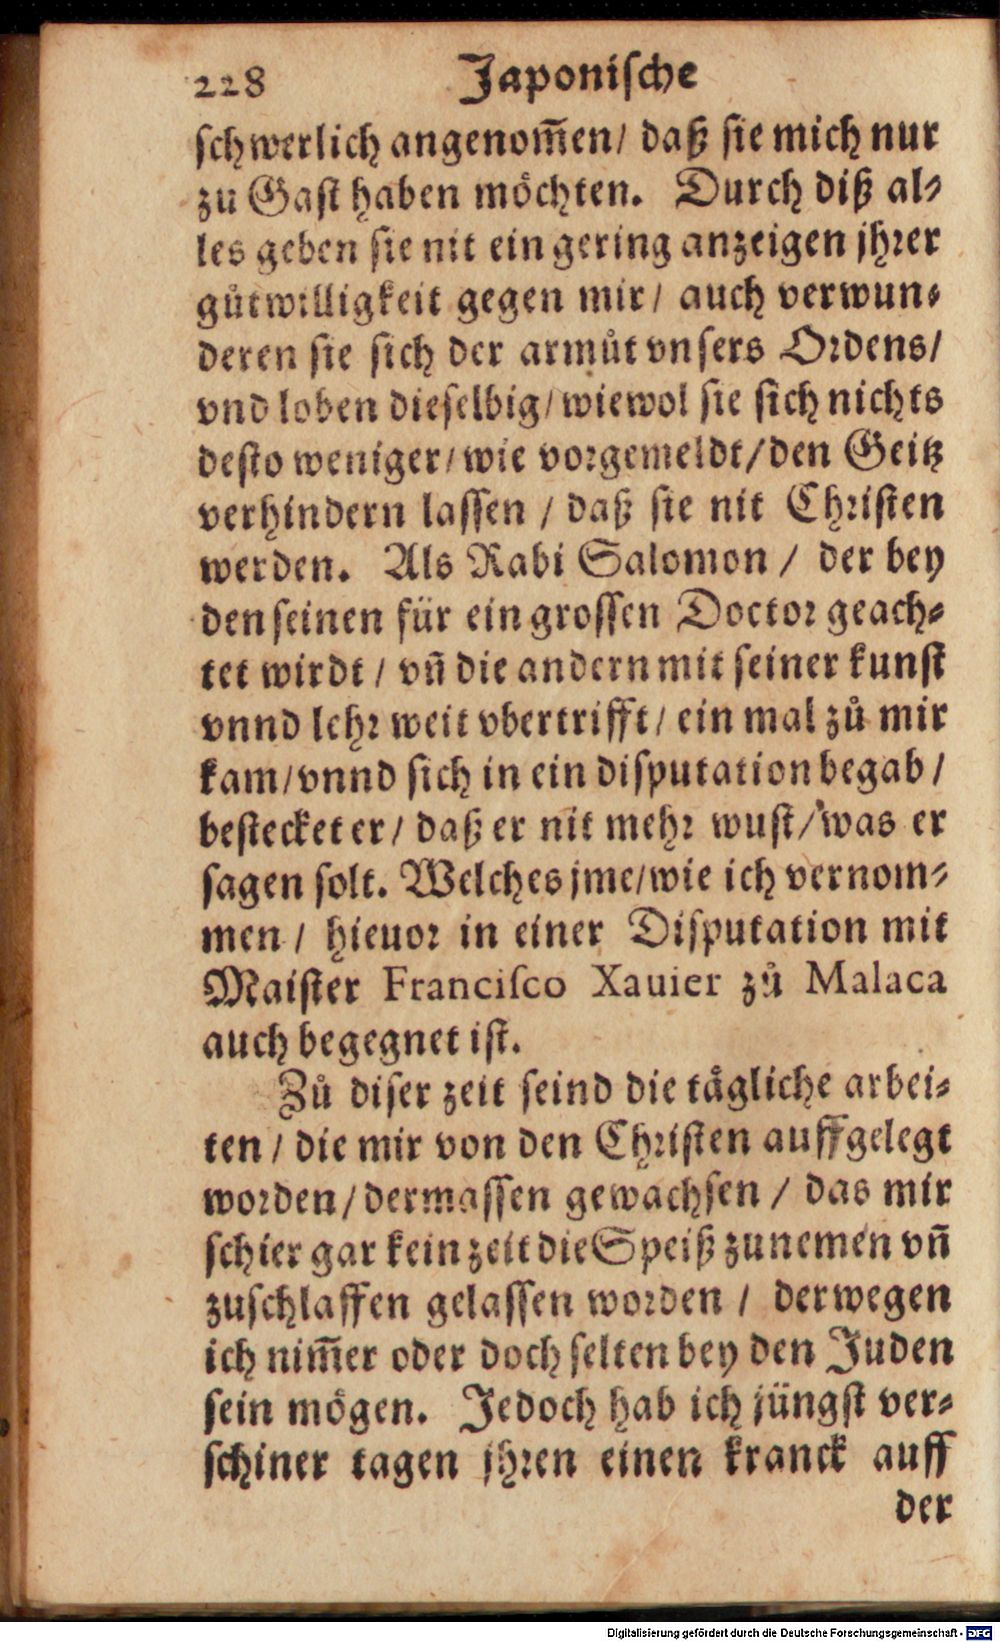 228 Japonische
schwerlich angenom̃en/ daß sie mich nur
zu Gast haben möchten. Durch diß al-
les geben sie nit ein gering anzeigen jhrer
gůtwilligkeit gegen mir/ auch verwun-
deren sie sich der armůt vnsers Ordens/
vnd loben dieselbig/ wiewol sie sich nichts
desto weniger/ wie vorgemeldt/ den Geitz
verhindern lassen / daß sie nit Christen
werden. Als Rabi Salomon / der bey
den seinen für ein grossen Doctor geach-
tet wirdt / vñ die andern mit seiner kunst
vnnd lehr weit vbertrifft/ ein mal zů mir
kam/ vnnd sich in ein disputation begab /
bestecket er/ daß er nit mehr wust/ was er
sagen solt. Welches jme/ wie ich vernom-
men / hieuor in einer Disputation mit
Maister Francisco Xauier zů Malaca
auch begegnet ist.
Zů diser zeit seind die tägliche arbei-
ten / die mir von den Christen auffgelegt
worden/ dermassen gewachsen / das mir
schier gar kein zeit die Speiß zunemen vñ
zuschlaffen gelassen worden / derwegen
ich nim̃er oder doch selten bey den Juden
sein mögen. Jedoch hab ich jüngst ver-
schiner tagen jhren einen kranck auff
der
Digitalisierung gefördert durch die Deutsche Forschungsgemeinschaft - DFG